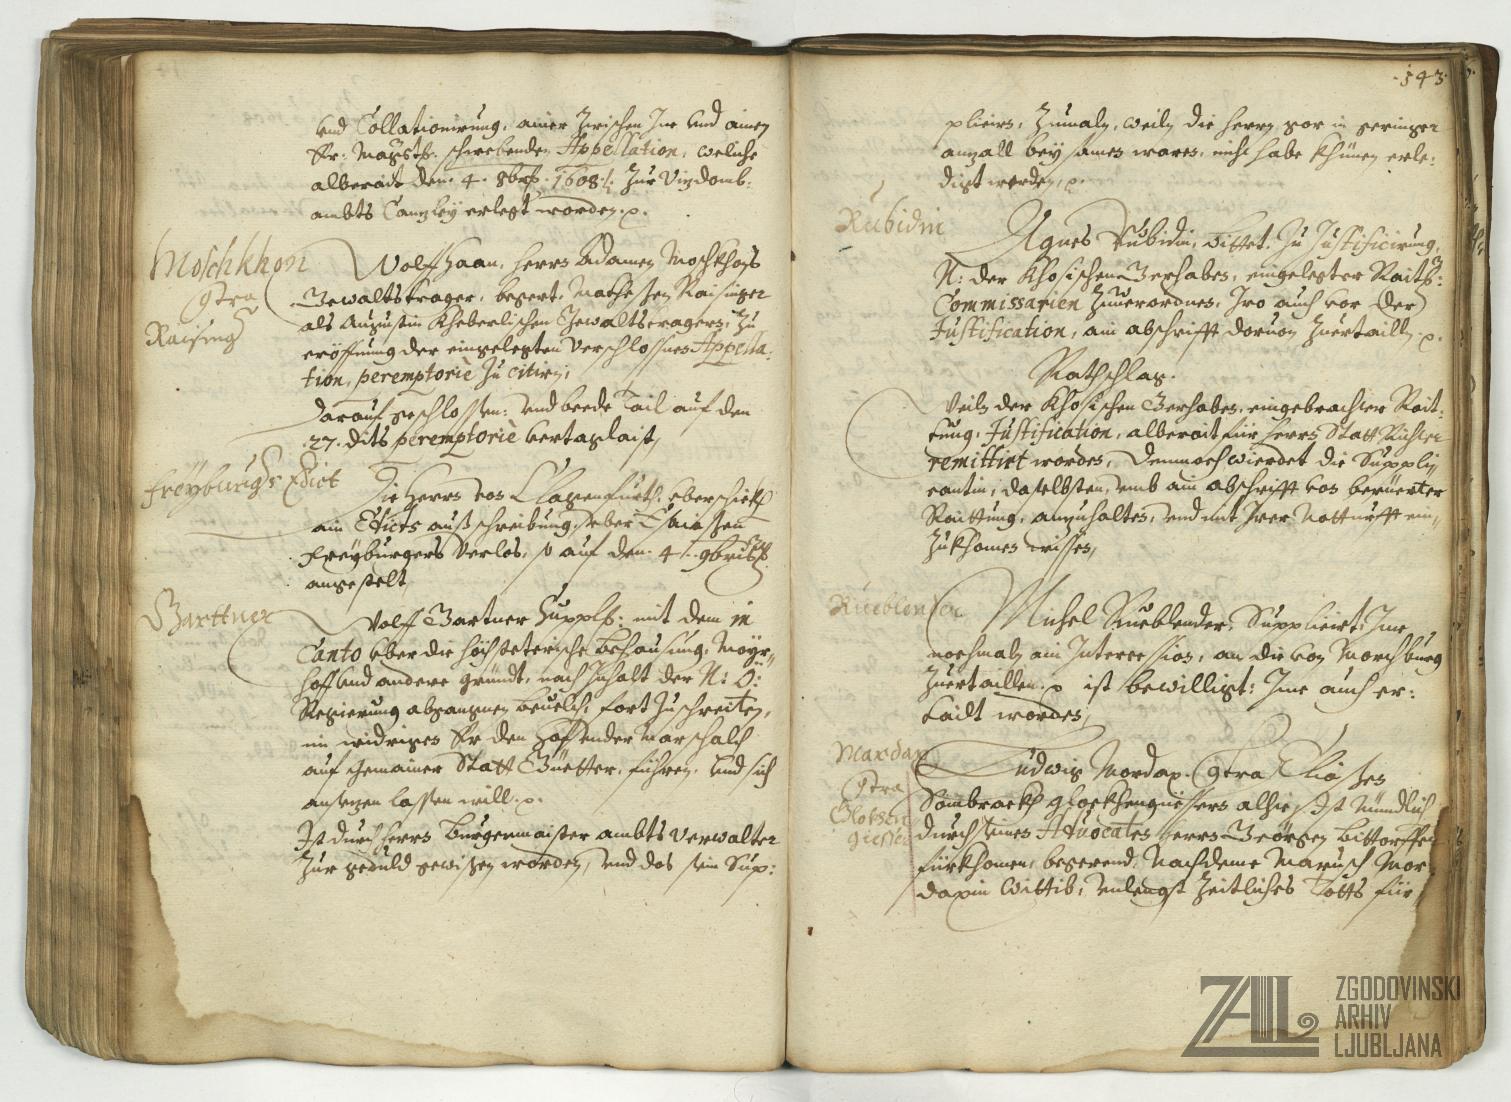 vnd Collationirung, ainer Zwischen Ime vnd ainem
Er: Magistr: schwebenden Appellation, weliche
alberait den 4. 8bris 1608 Zur Vizdomb:
ambts Canzley erlegt worden.
Moschkhon
ctra
Raising
Wolff Haan, Herrn Adamen Moschkhon
Gewaltstrager, begert, Mathesen Raisinger
als Augustin Kheberlischen Gewaltstragern, Zu
eröffnung der eingelegten Verschlossnen Appella:
tion, peremptoriè Zu citirn,
Darauf geschlossen: vnd beede Tail auf den
27. dits peremptoriè vertaglaist,
Freyburgs Edict
Die Herrn von Clagenfurth, vberschickh
ain Edicts außschreibung, veber
Freyburgers Verlas, so auf den 4. 9bris
angestelt,
Garttner
Wolff Gartner Suppls: mit dem in
Canto vber die Behausung, Mayr:
hoff vnd andere gründt, nach Inhalt der N: Ö:
Regierung abgangnen beuelch, fort Zuschreiten,
im widrigen Er den
auf gemainer Statt Güetter, führen, vnd sich
ansezen lassen will.
Ist durch Herrn Burgermaister ambts Verwalter
Zur geduld gewisen worden, vnd das sein Sup:
143.
pliciern, Zumaln, weiln die herrn gar in geringer
anzall bey samen waren, nicht habe khünen erle:
digt werden.
Rubidin
Agnes Rubidin, bittet, Zu Justificirung,
N: der Khosischen Gerhaben, eingelegter Raith:
Commissarien Zuuerordnen, Iro auch vor der
Justification, ain abschrifft daruon Zuertailln.
Rathschlag.
Weiln der Khosischen Gerhaben, eingebrachter Rait:
tung, Justification, alberait für Herrn Statt Richter
remittirt worden, Demnach wierdet die Suppli:
cantin, daselbsten, vmb ain abschrifft von berüerter
Raittung, anzuhalten, vnd mit Irer Notturfft ein
Zukhomen wissen,
Rueblender
Michel Rueblender, Supplicirt, Ime
nochmaln ain Intercession, an die von
Zuertaillen. ist bewilligt: Ime auch er:
tailt worden,
Mardax
ctra
Glokhen
giesser
Ludwig Mordax. ctra Eliasen
Sambrackh glockhengüessers alhie, Ist mündlich
durch seinen Aduocaten herrn Geörgen
fürkhomen, begerend, Nachdeme Marusch Mor:
daxin Wittib, vnlengst Zeitliches Totts für
ZAL ZGODOVINSKI
ARHIV
LJUBLJANA